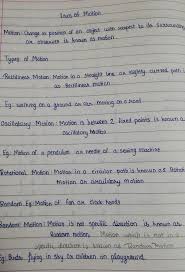 Laws of Motion
Motion: Change in position of an object with respect to its surrounding
an observer is known as motion.
Types of Motion
Rectilinear Motion: Motion in a straight line or slightly curved path is
as Rectilinear motion
Eg: walking on a ground or car moving on a road
Oscillatory Motion: Motion is between 2 fixed points is known as
Oscillatory Motion.
Eg: Motion of a pendulum or needle of a sewing machine
Rotational Motion: Motion in a circular path is known as
Motion or circulatory motion
Random Eg: Motion of fan or Clock hands
Random Motion: Motion is not specific direction is known as
Random motion. Motion which is not in a
specific direction is known as Random Motion
Eg: Birds flying in sky or children on playground.